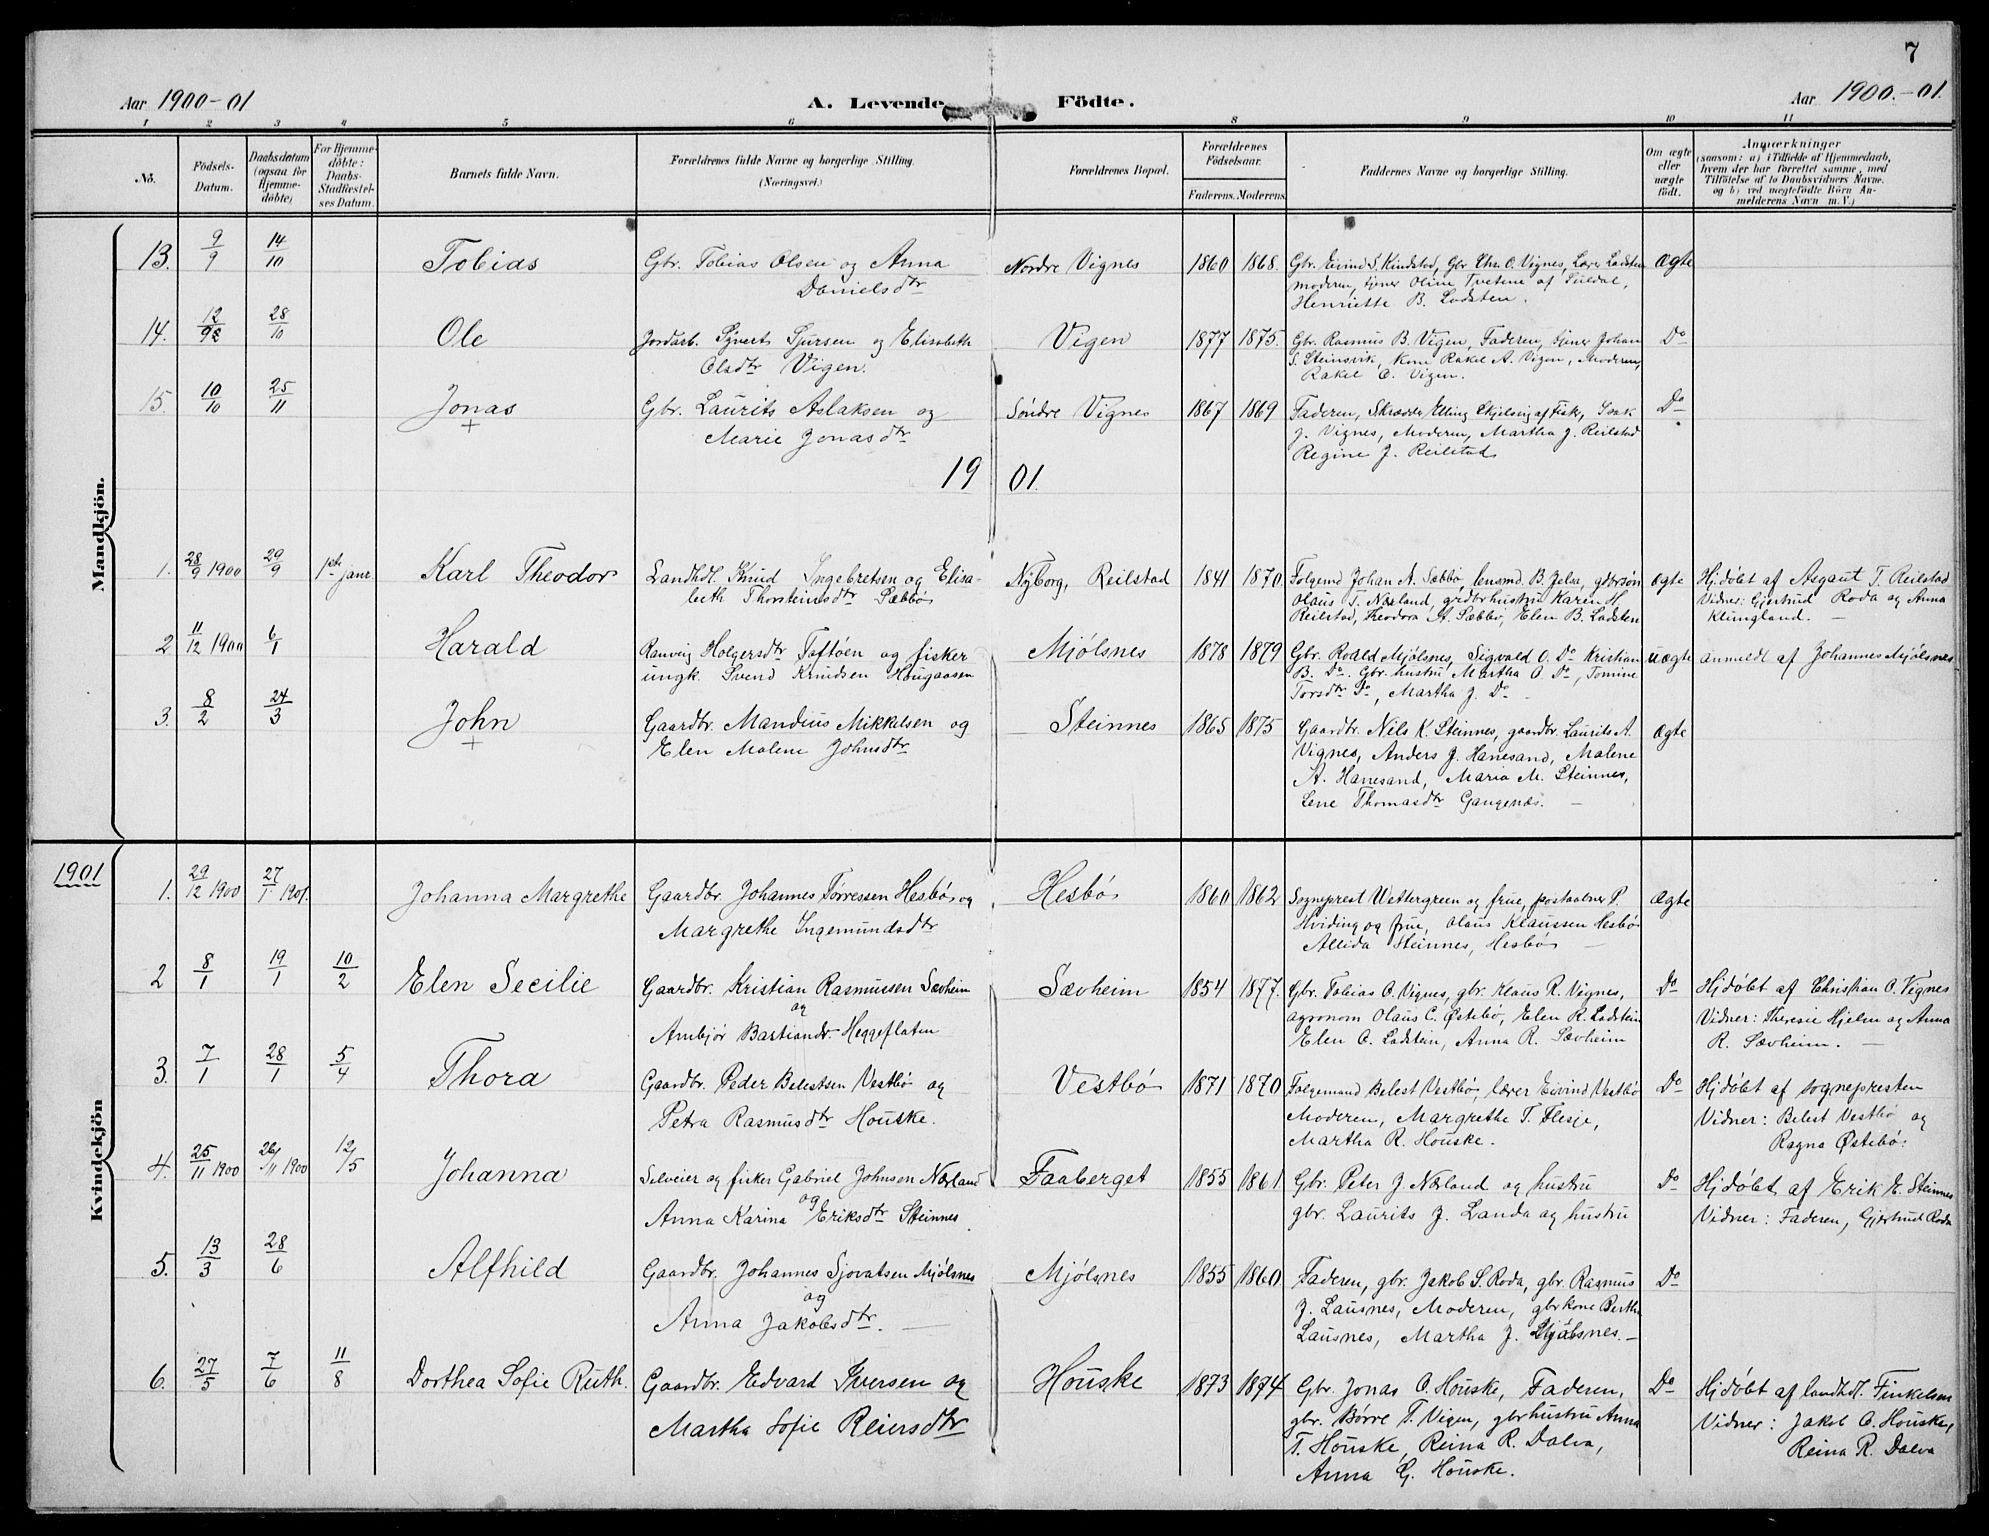 7
Aar 1900-01
A. Levende Födte.
Aar 1900.-01.
1 2 3 4 5 6 8 9 10 11
No.
Födsels-Datum.
Daabsdatum (ogsaa for Hjemme-döbte)
For Hjemme-döbte: Daabs-Stadfæstel-ses Datum.
Barnets fulde Navn.
Forældrenes fulde Navne og borgerlige Stilling.
(Næringsvei.)
Forældrenes Bopæl.
Forældrenes Födselsaar.
Faderens. Moderens.
Faddernes Navne og borgerlige Stilling.
Om ægte eller uægte födt.
Anmærkninger
(saasom: a) i Tilfælde af Hjemmedaab,
hvem der har forrettet samme, med
Tilföielse af to Daabsvidners Navne.
og b) ved uægtefödte Börn An-
melderens Navn m. V.)
Mandkjön.
13. 9/9 14/10 Tobias Gbr. Tobias Olsen og Anna Danielsdtr Nordre Vignes 1860 1868. Gbr. Eivind S. Kindstad, Gbr Chr. O. Vignes, Lærer Ladsten
moderen, tjener Oline Tvetene af Suldal,
Henriette B. Ladsten. Ægte
14. 12/9 28/10 Ole Jordarb. Syvert Sjursen og Elisabeth
Olsdtr Vigen. Vigen 1877 1875. Gbr. Rasmus B. Vigen, Faderen, tjener Johan
S. Steinsvik, Kone Rakel A. Vigen, Moderen,
Rakel O. Vigen. Do
15. 10/10 25/11 Jonas
+ Gbr. Laurits Aslaksen og
Marie Jonasdtr Söndre Vignes 1867 1869 Faderen, Skrædder Elling Skjelsvig af Fisk, Isak
J. Vignes, Moderen, Martha J. Reilstad
Regine J. Reilstad Do
1901.
1. 28/9 1900 29/9 1ste janr. Karl Theodor Landhdl. Knud Ingebretsen og Elisa-
beth Thorsteinsdtr Sæbbø Nyborg, Reilstad 1841 1870 Følgemd Johan A. Sæbbø, lensmd. B. Jelsa, gdbrsøn
Olaus T. Nærland, grdbrhustru Karen H.
Reilstad, Theodora A. Sæbbø, Elen B. Ladsten ægte Hjdøbt af Asgaut T. Reilstad
Vidner: Gjertrud Roda og Anna
Klungland.
2 11/12 1900 6/1 Harald Ranveig Holgersdtr Toftøen og fisker
ungk. Svend Knudsen Hougaasen Mjølsnes 1878 1879 Gbr. Roald Mjølsnes, Sigvald O. Do Kristian
B. Do. Gbr. hustru Martha O. Do, Tomine
Torsdtr Do, Martha J. Do uægte anmeldt af Johannes Mjølsnes
3. 8/2 24/3 John
+ Gaardbr. Mandius Mikkelsen og
Elen Malene Johnsdtr Steinnes 1865 1875 Gaardbr. Nils K. Steinnes, gaardbr. Laurits A.
Vignes, Anders J. Hanesand, Malene
A. Hanesand, Maria M. Steinnes,
Lene Thomasdtr Gangenæs. ægte
1901
Kvindekjön
1. 29/12 1900 27/1 1901. Johanna Margrethe Gaardbr. Johannes Tørressen Hesbø og
Margrethe Ingemundsdtr Hesbø 1860 1862 Sogneprest Wettergreen og frue, postaabner P.
Hviding og frue, Olaus Klaussen Hesbø
Allida Heinnes, Hesbø ægte
2 8/1 19/1 10/2 Elen Secilie Gaardbr. Kristian Rasmussen Sævheim
og
Ambjør Bastiandr. Heggeflaten Sævheim 1854 1877. Gbr. Tobias O. Vignes, gbr. Klaus R. Vignes,
agronom Olaus C. Østebø, Elen R. Ladstein
Elen O. Ladstein, Anna R. Sævheim Do Hjdøbt af Christian O. Vignes
Vidner: Theresie Hjelm og Anna
R. Sævheim.
3. 7/1 28/1 5/4 Thora Gaardbr. Peder Belestsen Vestbø og
Petra Rasmusdtr Houske. Vestbø 1871 1870 Følgemand Belest Vestbø, lærer Eivind Vestbø
Moderen, Margrethe T. Flesje,
Martha R. Houske. Do Hjdøbt af sognepresten
Vidner: Belest Vestbø og
Ragna Østebø.
4. 25/11 1900 26/11 1900 12/5 Johanna Selveier og fisker Gabriel Johnsen Nærland
og
Anna Karina Eriksdtr Steinnes. Faaberget 1855 1861 Gbr. Peter J. Nærland og hustru
gbr. Laurits J. Landa og hustru Do Hjdøbt af Erik E. Steinnes
Vidner: Faderen, Gjertrud Roda
5. 13/3 28/6 Alfhild Gaardbr. Johannes Sjovatsen Mjølsnes
og
Anna Jakobsdtr. Mjølsnes 1855 1860 Faderen, gbr. Jakob S. Roda, gbr. Rasmus
J. Lausnes, Moderen, gbrkone Bertha
Lausnes, Martha J. Mjølsnes. Do
6. 27/5 7/6 11/8 Dorthea Sofie Ruth. Gaardbr. Edvard Iversen og
Martha Sofie Reiersdtr Houske 1873 1874 Gbr. Jonas O. Houske, Faderen,
gbr. Børre T. Vigen, gbrhustru Anna
T. Houske, Reina R. Dalva,
Anna G. Houske. Do Hjdøbt af landhdl. Finkelsen
Vidner: Jakob O. Houske,
Reina R. Dalva